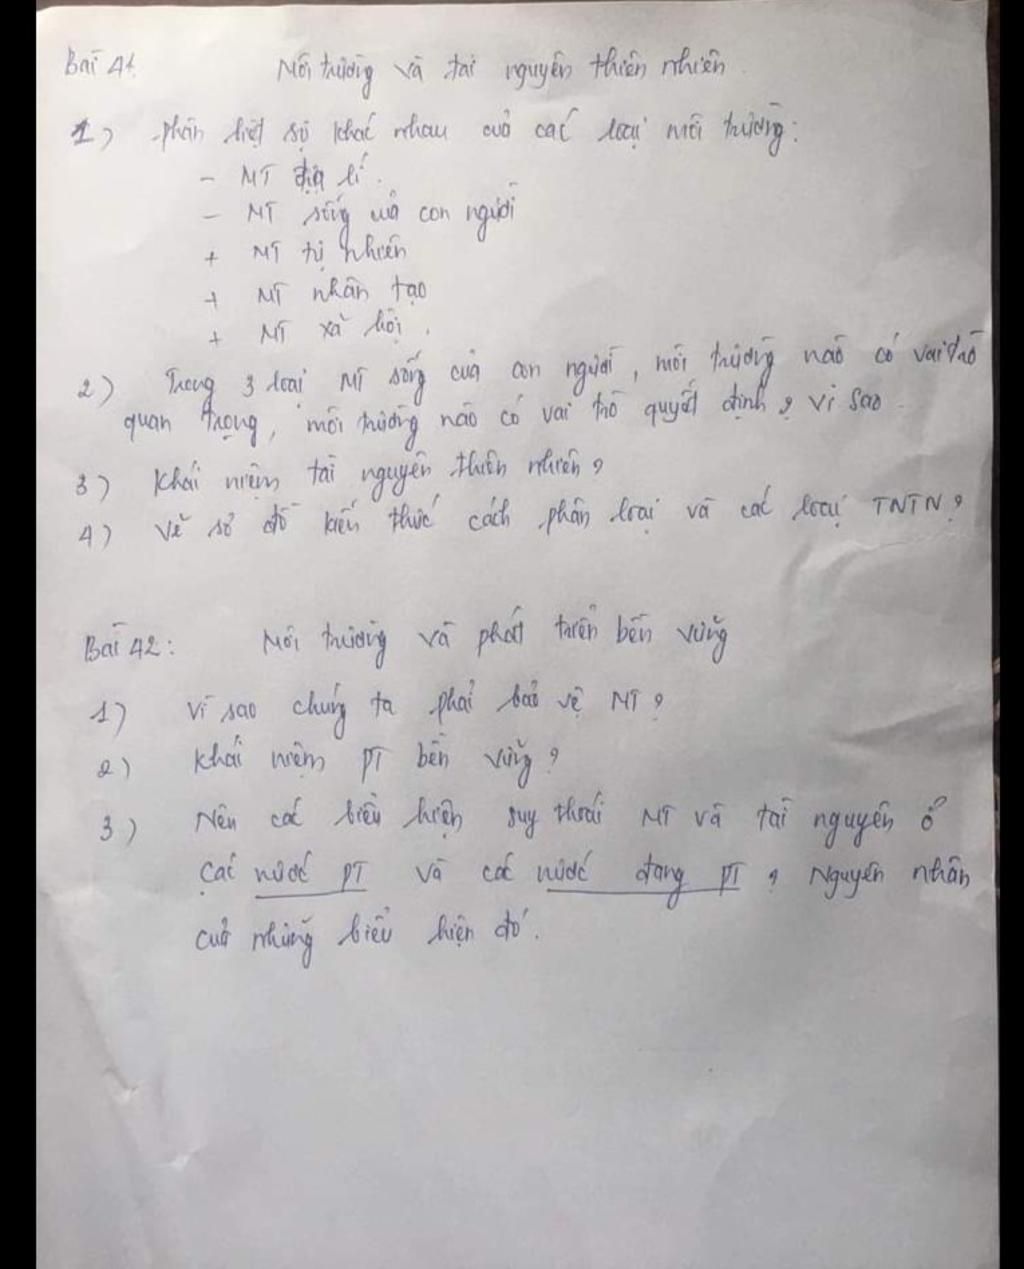 Bài 41. Môi trường và tài nguyên thiên nhiên.
1) phân biệt sự khác nhau của các loại môi trường:
- MT địa lí.
- MT sống của con người
+ MT tự nhiên
+ MT nhân tạo
+ MT xã hội.
2) Trong 3 loại MT sống của con người, môi trường nào có vai trò
quan trọng, môi trường nào có vai trò quyết định? Vì sao.
3) Khái niệm tài nguyên thiên nhiên?
4) Vẽ sơ đồ kiến thức cách phân loại và các loại TNTN?
Bài 42: Môi trường và phát triển bền vững
1) Vì sao chúng ta phải bảo vệ MT?
2) Khái niệm PT bền vững?
3) Nêu các biểu hiện suy thoái MT và tài nguyên ở
các nước PT và các nước đang PT? Nguyên nhân
của những biểu hiện đó.